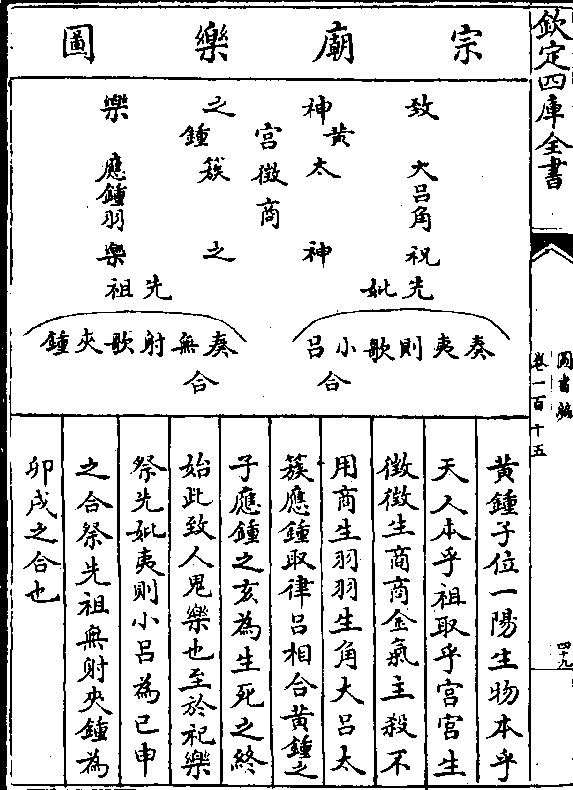 欽定四庫全書
圖書編
卷一百十五
四十九
宗廟樂圖
致神之樂
黃鍾宮
大呂角
太簇徵
應鍾羽
商
祝神之樂
先妣
先祖
奏夷則歌小呂
合
奏無射歌夾鍾
合
黃鍾子位一陽生物本乎
天人本乎祖取乎宮宮生
徵徵生商商金氣主殺不
用商生羽羽生角大呂太
簇應鍾取律呂相合黃鍾之
子應鍾之亥為生死之終
始此致人鬼樂也至於祀樂
祭先妣夷則小呂為已申
之合祭先祖無射夾鍾為
卯戌之合也